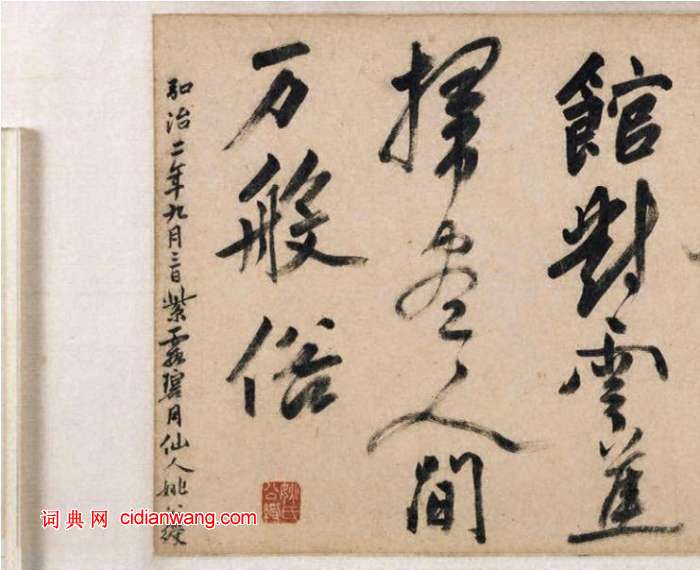 館對雲蕉
掃盡人間
万般俗
弘治二年九月三日紫霞碧月仙人姚公綬
姚氏公綬
词典网 cidianwang.com